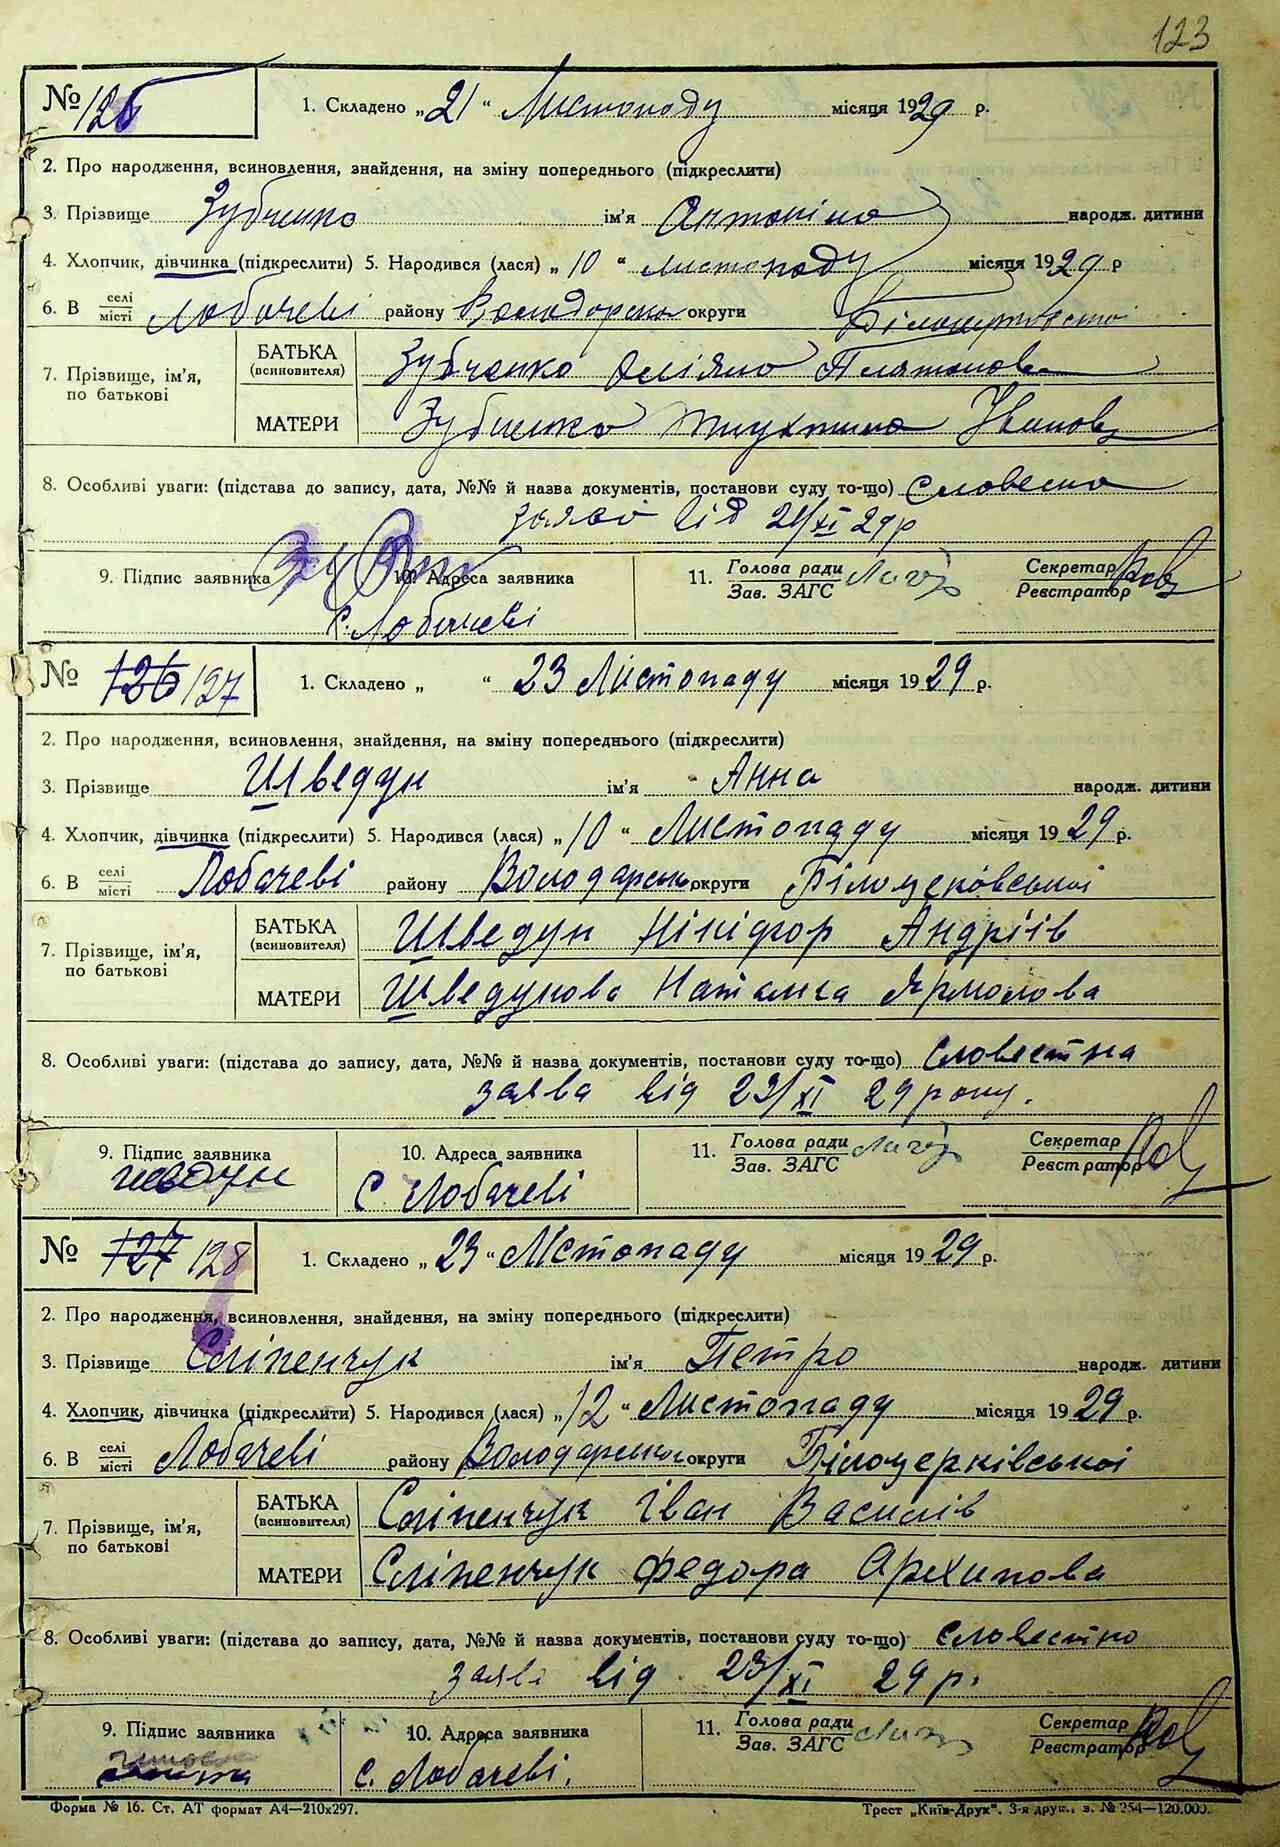 123
№ 126
1. Складено „21“ Листопаду місяця 1929 р.
2. Про народження, всиновлення, знайдення, на зміну попереднього (підкреслити)
3. Прізвище Зубченко ім'я Антоніна народж. дитини
4. Хлопчик, дівчинка (підкреслити) 5. Народився (лася) „10“ листопаду місяця 1929 р
6. В селі/місті Лобачеві району Володарсько округи Білоцерківської
7. Прізвище, ім'я, по батькові
БАТЬКА (всиновителя) Зубченко Платонов
МАТЕРИ Зубченко Иванов
8. Особливі уваги: (підстава до запису, дата, №№ й назва документів, постанови суду то-що) Словесна
заява від 21/XI 29 р
9. Підпис заявника 10. Адреса заявника 11. Голова ради / Зав. ЗАГС Секретар / Реєстратор
с. Лобачеві
№ 126 127
1. Складено „ “ 23 Листопаду місяця 1929 р.
2. Про народження, всиновлення, знайдення, на зміну попереднього (підкреслити)
3. Прізвище Шведун ім'я Анна народж. дитини
4. Хлопчик, дівчинка (підкреслити) 5. Народився (лася) „10“ Листопаду місяця 1929 р.
6. В селі/місті Лобачеві району Володарсько округи Білоцерковської
7. Прізвище, ім'я, по батькові
БАТЬКА (всиновителя) Шведун Нікіфор Андріів
МАТЕРИ Шведунова Наталка Ярмолова
8. Особливі уваги: (підстава до запису, дата, №№ й назва документів, постанови суду то-що) словестна
заява від 23/XI 29 року.
9. Підпис заявника 10. Адреса заявника 11. Голова ради / Зав. ЗАГС Секретар / Реєстратор
Шведун с Лобачеві
№ 127 128
1. Складено „23“ Лістопаду місяця 1929 р.
2. Про народження, всиновлення, знайдення, на зміну попереднього (підкреслити)
3. Прізвище Сліпенчук ім'я Петро народж. дитини
4. Хлопчик, дівчинка (підкреслити) 5. Народився (лася) „12“ Листопаду місяця 1929 р.
6. В селі/місті Лобачеві району Володарсько округи Білоцерківської
7. Прізвище, ім'я, по батькові
БАТЬКА (всиновителя) Сліпенчук Іван Василів
МАТЕРИ Сліпенчук Федора Архипова
8. Особливі уваги: (підстава до запису, дата, №№ й назва документів, постанови суду то-що) словестно
заява від 23/XI 29 р.
9. Підпис заявника 10. Адреса заявника 11. Голова ради / Зав. ЗАГС Секретар / Реєстратор
с. Лобачеві.
Форма № 16. Ст. АТ формат А4—210х297. Трест „Київ-Друк“. 3-я друк., з. № 254—120.000.